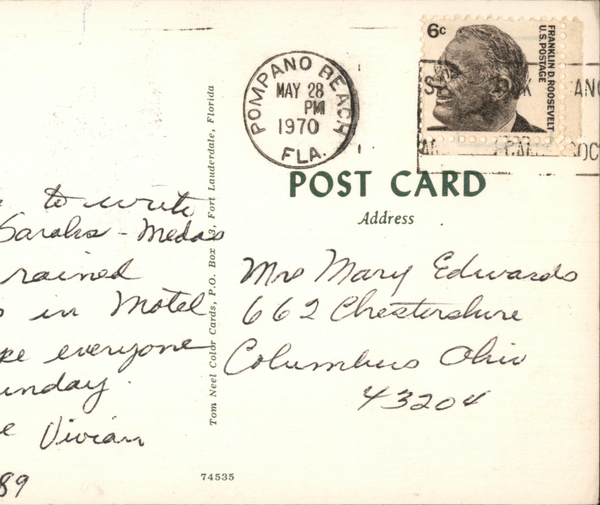 to write
Sarahs - Medas
rained
in Motel
everyone
Sunday.
Vivian
89
Tom Neel Color Cards, P.O. Box 13, Fort Lauderdale, Florida
74535
POMPANO BEACH
MAY 28
PM
1970
FLA.
6c
FRANKLIN D. ROOSEVELT
U.S. POSTAGE
POST CARD
Address
Mrs Mary Edwards
662 Chestershire
Columbus Ohio
43204